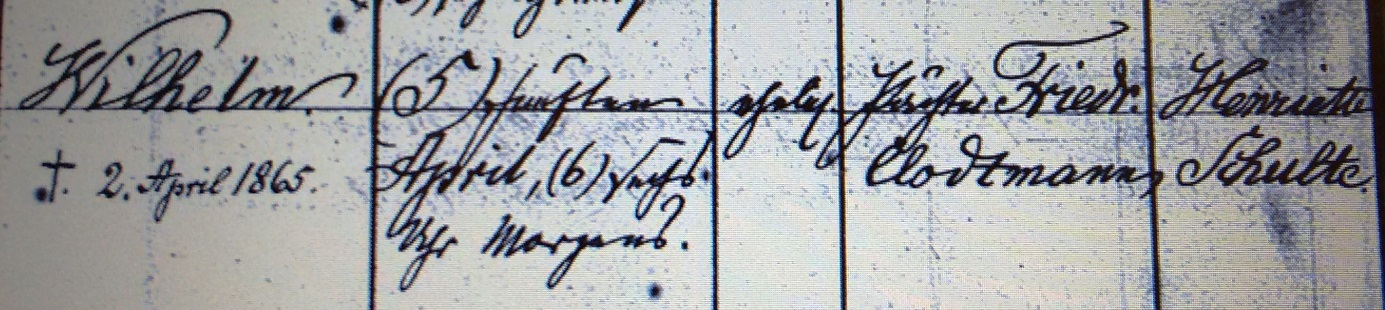 Wilhelm.
†. 2. April 1865.
(5) fünften
April, (6) sechs
Uhr Morgens.
ehel.
Pächter Friedr.
Clodtmann,
Henriette
Schulte.